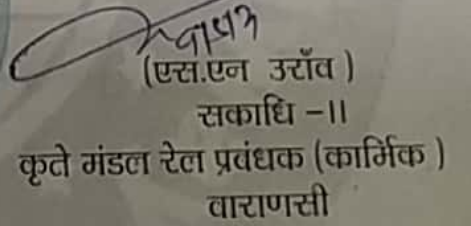 (एस.एन उराँव )
सकाधि -II
कृते मंडल रेल प्रबंधक (कार्मिक )
वाराणसी